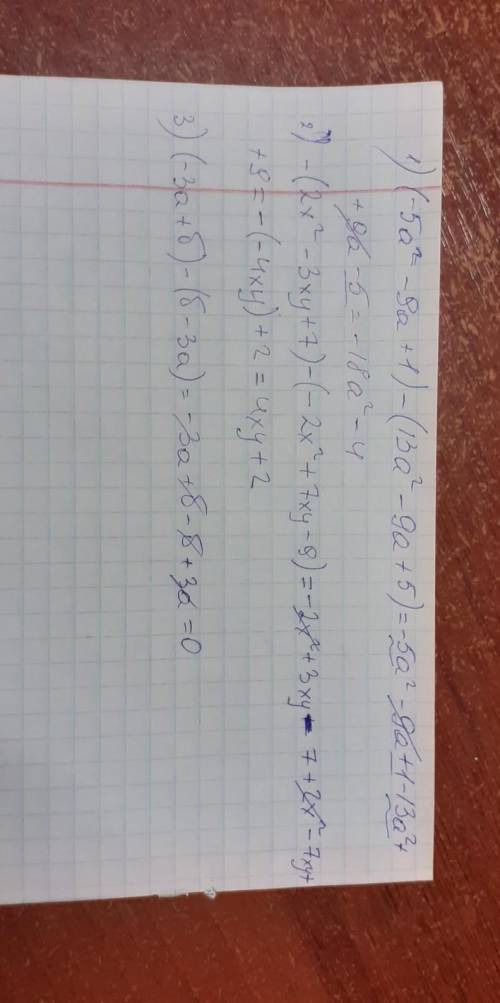 1) (-5a² - 9a + 1) - (13a² - 9a + 5) = -5a² - 9a + 1 - 13a² +
+ 9a - 5 = -18a² - 4
2) -(2x² - 3xy + 7) - (-2x² + 7xy - 9) = -2x² + 3xy - 7 + 2x² - 7xy +
+ 9 = -(-4xy) + 2 = 4xy + 2
3) (-3a + б) - (б - 3a) = -3a + б - б + 3a = 0